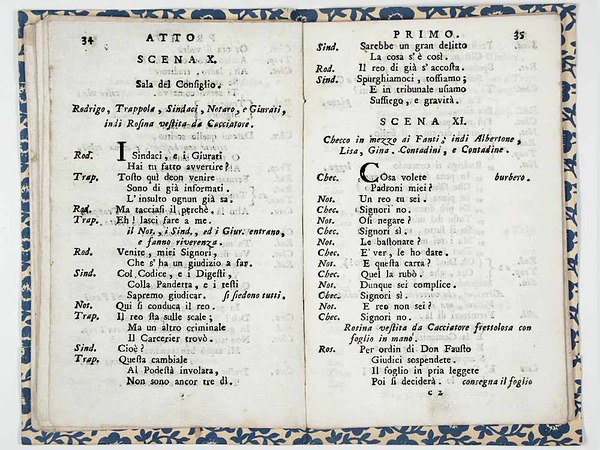 34
ATTO
SCENA X.
Sala del Consiglio.
Rodrigo, Trappola, Sindaci, Notaro, e Giurati,
indi Rosina vestita da Cacciatore.
Rod. I Sindaci, e i Giurati
Hai tu fatto avvertire?
Trap. Tosto quì deon venire
Sono di già informati.
L'insulto ognun già sa.
Rod. Ma tacciasi il perchè.
Trap. Eh! lasci fare a me.
il Not., i Sind., ed i Giur. entrano,
e fanno riverenza.
Rod. Venite, miei Signori,
Che s'ha un giudizio a far.
Sind. Col Codice, e i Digesti,
Colla Pandetta, e i testi
Sapremo giudicar. si siedono tutti.
Not. Qui si conduca il reo.
Trap. Il reo sta sulle scale;
Ma un altro criminale
Il Carcerier trovò.
Sind. Cioè?
Trap. Questa cambiale
Al Podestà involata,
Non sono ancor tre dì.
PRIMO.
35
Sind. Sarebbe un gran delitto
La cosa s'è così.
Rod. Il reo di già s'accosta.
Sind. Spurghiamoci, tossiamo;
E in tribunale usiamo
Sussiego, e gravità.
SCENA XI.
Checco in mezzo ai Fanti; indi Albertone,
Lisa, Gina. Contadini, e Contadine.
Chec. COsa volete burbero.
Padroni miei?
Not. Un reo tu sei.
Chec. Signori no.
Not. Osi negare?
Chec. Signori sì.
Not. Le bastonate?
Chec. E' ver, le ho date.
Not. E questa carta?
Chec. Quel la rubò.
Not. Dunque sei complice.
Chec. Signori sì.
Not. E reo non sei?
Chec. Signori no.
Rosina vestita da Cacciatore frettolosa con
foglio in mano.
Ros. Per ordin di Don Fausto
Giudici sospendete.
Il foglio in pria leggete
Poi si deciderà. consegna il foglio
C 2